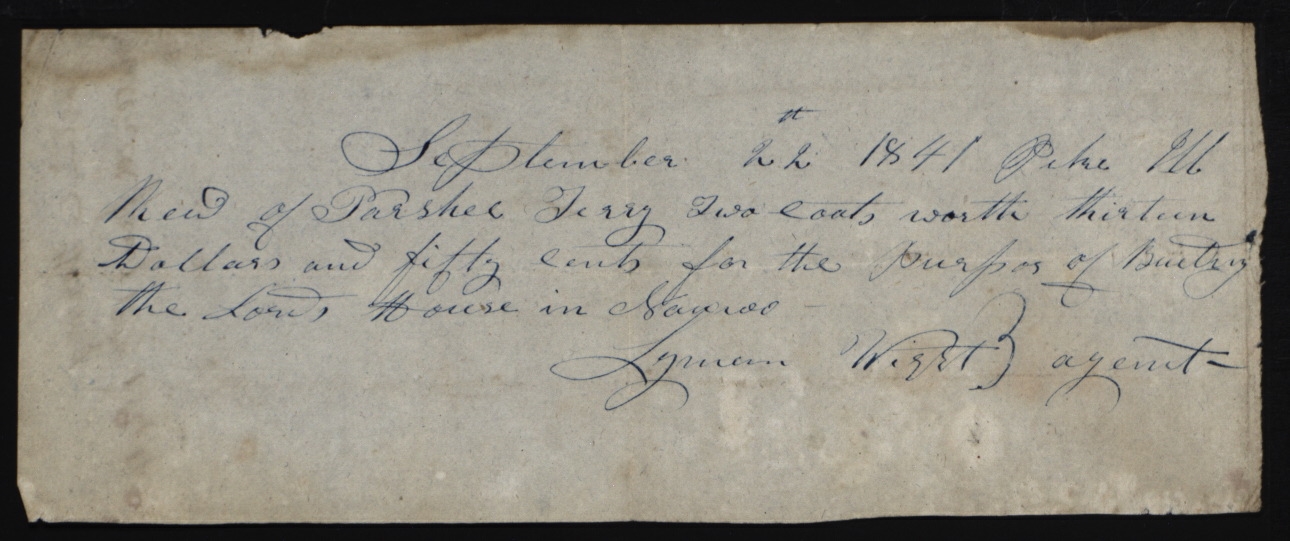 September 22th 1841 Pike Ill
Recd of Parshel Terry Two coats worth thirteen
Dollars and fifty cents for the purpos of Buelding
the Lords House in Nauvoo
Lyman Wight } agent